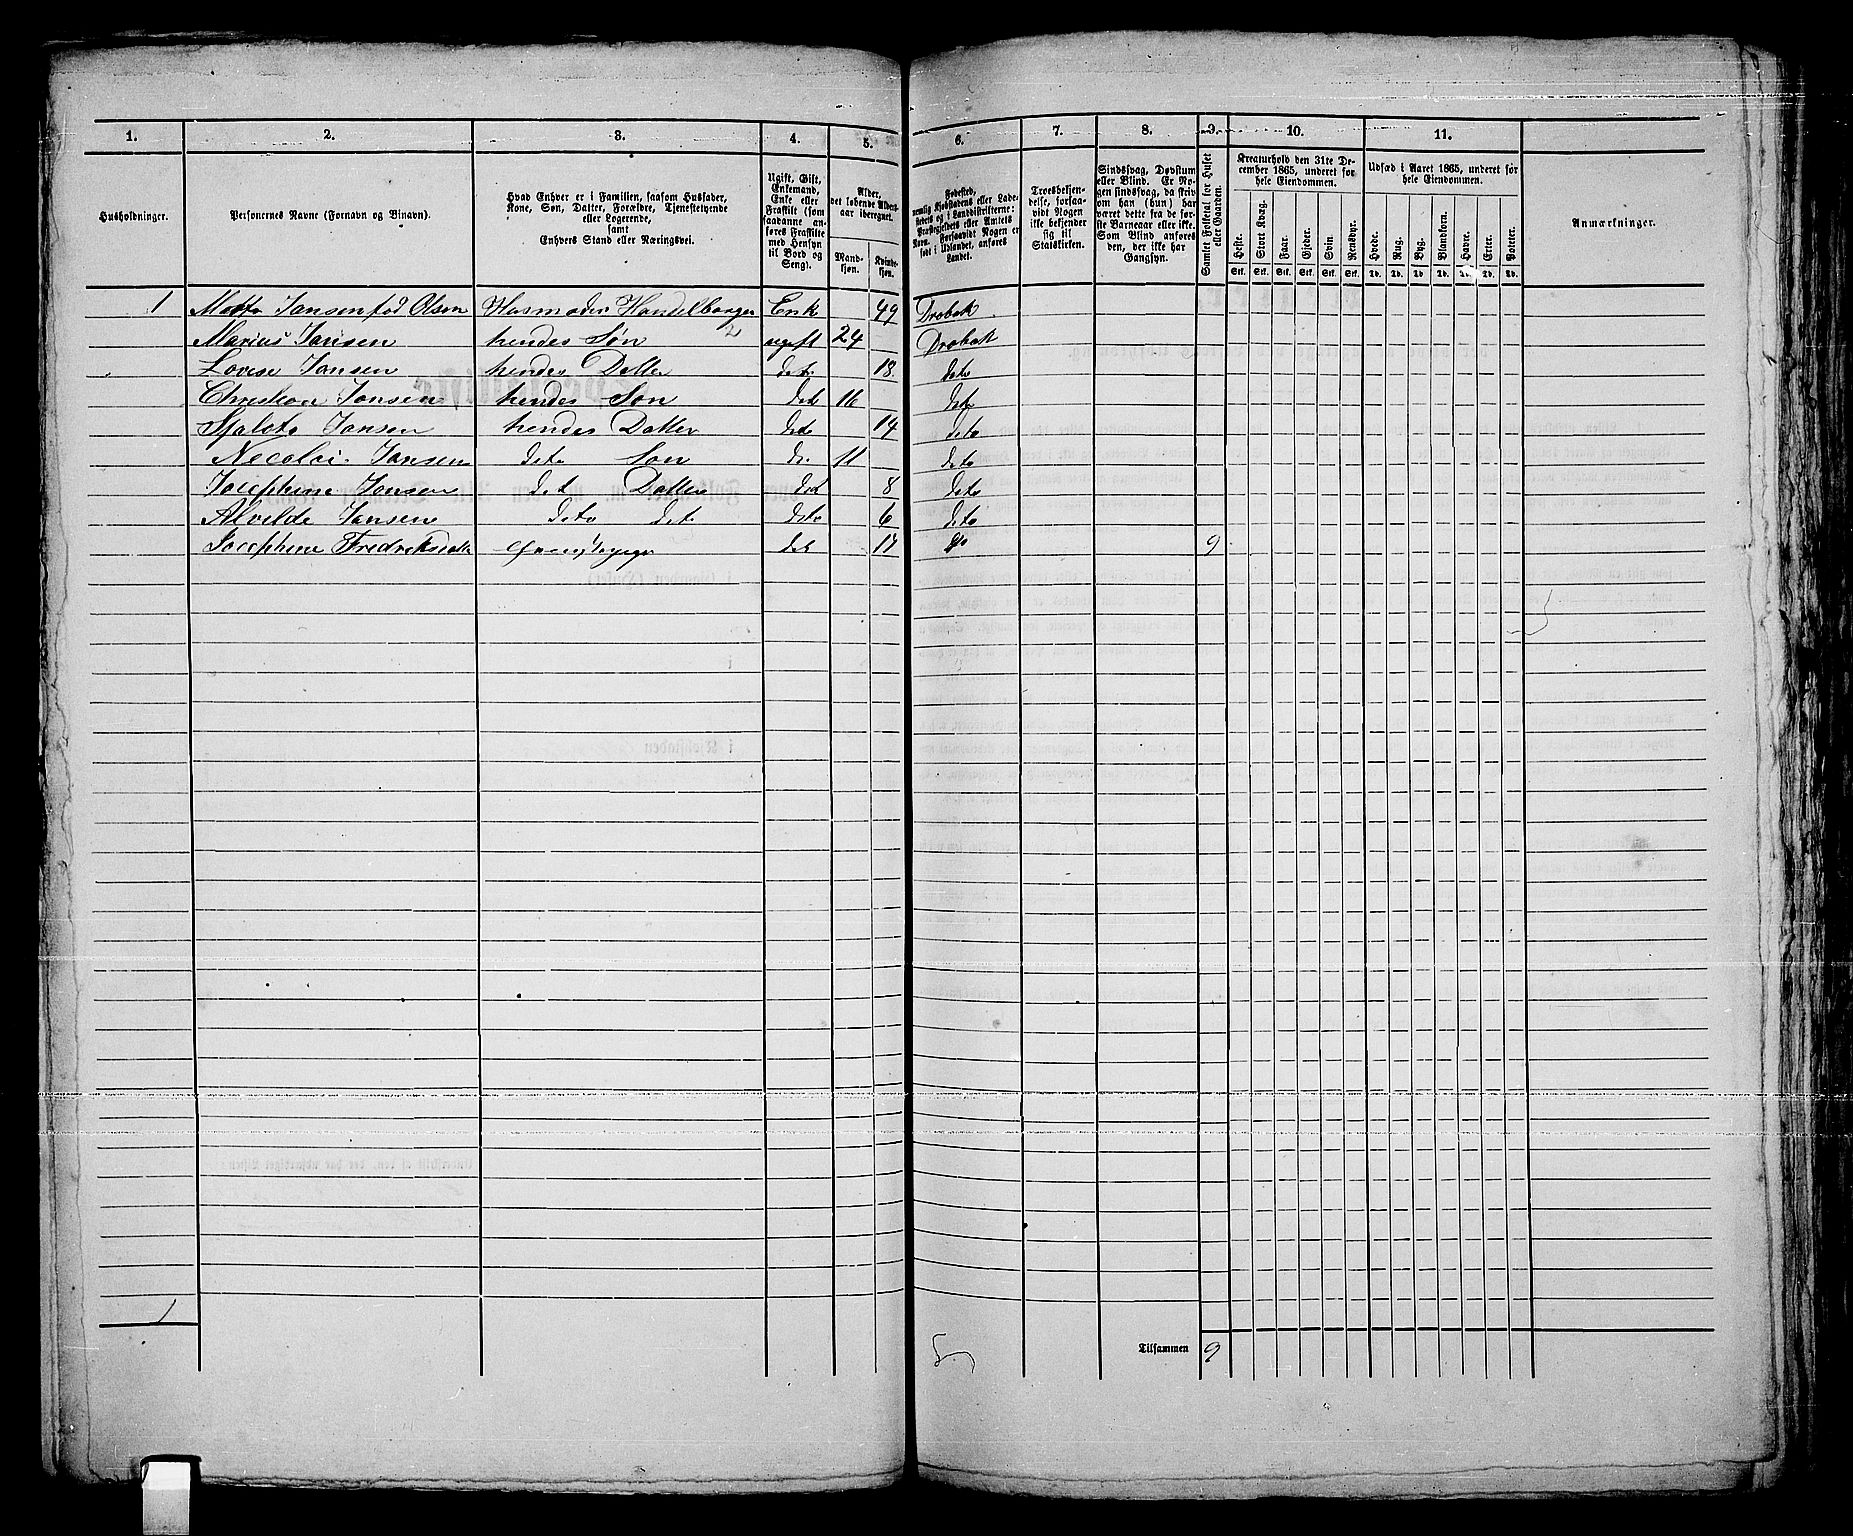 1. 2. 3. 4. 5. 6. 7. 8. 9. 10. 11.
Husholdninger.
Personernes Navne (Fornavn og Binavn).
Hvad Enhver er i Familien, saasom Husfader,
Kone, Søn, Datter, Forældre, Tjenestetyende
eller Logerende,
samt
Enhvers Stand eller Næringsvei.
Ugift, Gift,
Enkemand,
Enke eller
Fraskilt (som
saadanne an-
føres Fraskilte
med Hensyn
til Bord og
Seng).
Alder,
det løbende Alders-
aar iberegnet.
Mand-
kjøn.
Kvinde-
kjøn.
Fødested,
nemlig Kjøbstadens eller Lade-
stedets og i Landdistrikterne:
Præstegjeldets eller Amtets
Navn. Forsaavidt Nogen er
født i Udlandet, anføres
Landet.
Troesbekjen-
delse, forsaa-
vidt Nogen
ikke bekjender
sig til
Statskirken.
Sindssvag, Døvstum
eller Blind. Er No-
gen sindssvag, da skriv
om han (hun) har
været dette fra de før-
ste Barneaar eller ikke.
Som Blind anføres
den, der ikke har
Gangsyn.
Samlet Folketal for Huset
eller Gaarden.
Kreaturhold den 31te De-
cember 1865, underet for
hele Eiendommen.
Heste. Stort Kvæg. Faar. Gjeder. Svin. Rensdyr.
Stk. Stk. Stk. Stk. Stk. Stk.
Udsæd i Aaret 1865, underet for
hele Eiendommen.
Hvede. Rug. Byg. Blandkorn. Havre. Erter. Poteter.
Td. Td. Td. Td. Td. Td. Td.
Anmærkninger.
1 Jansen fød Olsen Husmoder Enk 49 Drobak
Marius Jansen hendes Søn ugift 24 Drobak
Lovise Jansen hendes Datter det. 18 deto
Christian Jansen hendes Søn det 16 deto
Jansen hendes Datter deto 14 deto
Necolai Jansen deto Søn do. 11 deto
Josephine Jansen det Datter det 8 deto
Alvilde Jansen deto deto deto 6 deto
Josephine det 17 do 9
1
Tilsammen 9